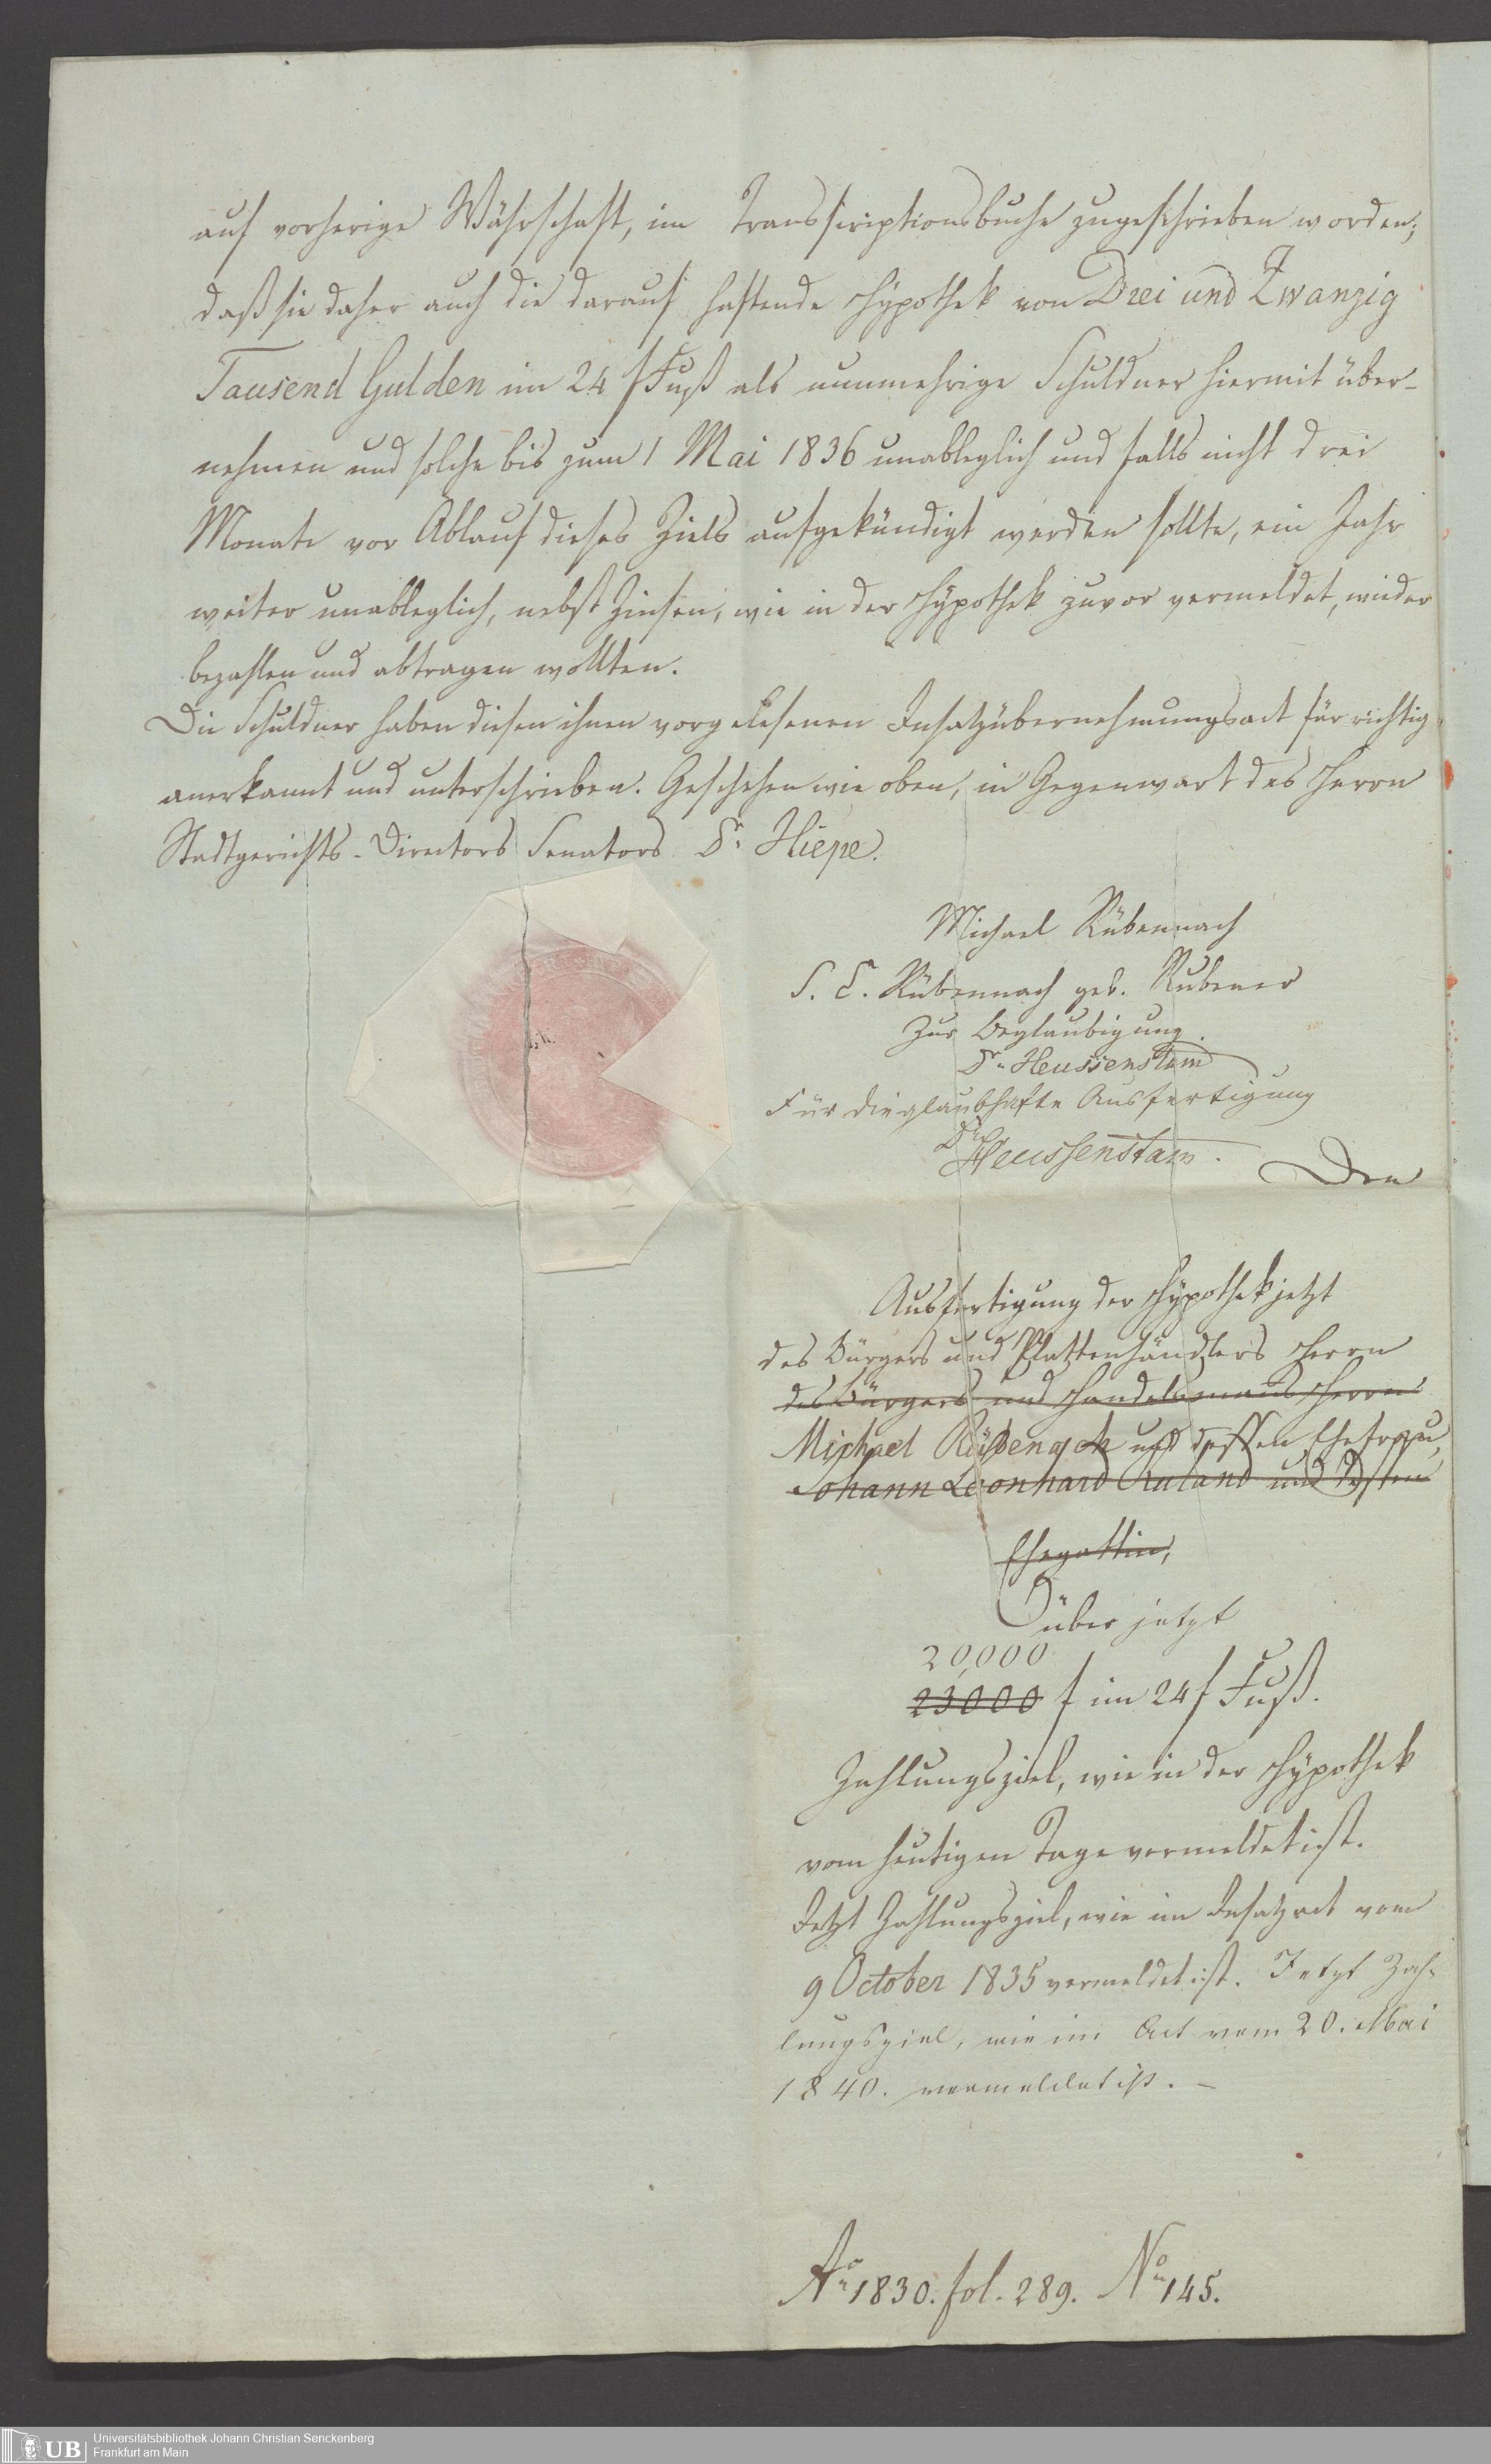 auf vorherige Währschaft, im Transscriptionsbuche zugeschrieben worden;
daß sie daher auch die darauf haftende Hypothek von Drei und Zwanzig
Tausend Gulden im 24 f Fuß als nunmehrige Schuldner hiermit über-
nehmen und solche bis zum 1 Mai 1836 unableglich und falls nicht drei
Monate vor Ablauf dieses Ziels aufgekündigt werden sollte, ein Jahr
weiter unableglich, nebst Zinsen, wie in der Hypothek zuvor vermeldet, wieder
bezahlen und abtragen wollten.
Die Schuldner haben diesen ihnen vorgelesenen Insatzübernehmungsact für richtig
anerkannt und unterschrieben. Geschehen wie oben, in Gegenwart des Herrn
Stadtgerichts-Directors Senators Dr. Hiepe.
Michael Rübennach
S. E. Rübennach geb. Rubener
Zur Beglaubigung.
Dr. Heussenstam
Für die glaubhafte Ausfertigung
Dr. Heussenstam.
Den
Ausfertigung der Hypothek jetzt
des Bürgers und Plattenhändlers Herrn
des Bürgers und Handelsmanns Herrn
Michael Rübenach und dessen Ehefrau,
Johann Leonhard Ruland und dessen
Ehegattin,
über jetzt
20,000
23000 f im 24 f Fuß.
Zahlungsziel, wie in der Hypothek
vom heutigen Tage vermeldet ist.
Jetzt Zahlungsziel, wie im Insatzact vom
9 October 1835 vermeldet ist. Jetzt Zah-
lungsziel, wie im Act vom 20. Mai
1840. vermeldet ist. –
Ao. 1830. fol. 289. No. 145.
UB
Universitätsbibliothek Johann Christian Senckenberg
Frankfurt am Main